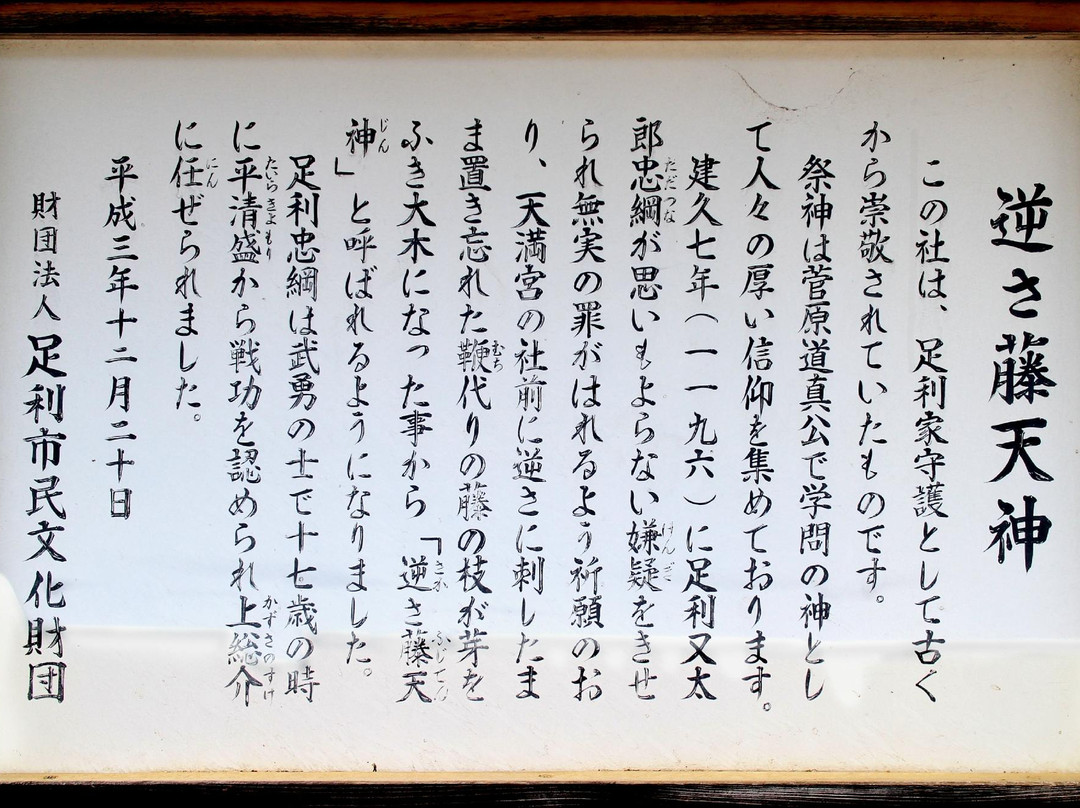 逆さ藤天神
この社は、足利家守護として古く
から崇敬されていたものです。
祭神は菅原道真公で学問の神とし
て人々の厚い信仰を集めております。
建久七年(一一九六)に足利又太
郎忠綱が思いもよらない嫌疑をきせ
られ無実の罪がはれるよう祈願のお
り、天満宮の社前に逆さに刺したま
ま置き忘れた鞭代りの藤の枝が芽を
ふき大木になった事から「逆さ藤天
神」と呼ばれるようになりました。
足利忠綱は武勇の士で十七歳の時
に平清盛から戦功を認められ上総介
に任ぜられました。
平成三年十二月二十日
財団法人足利市民文化財団